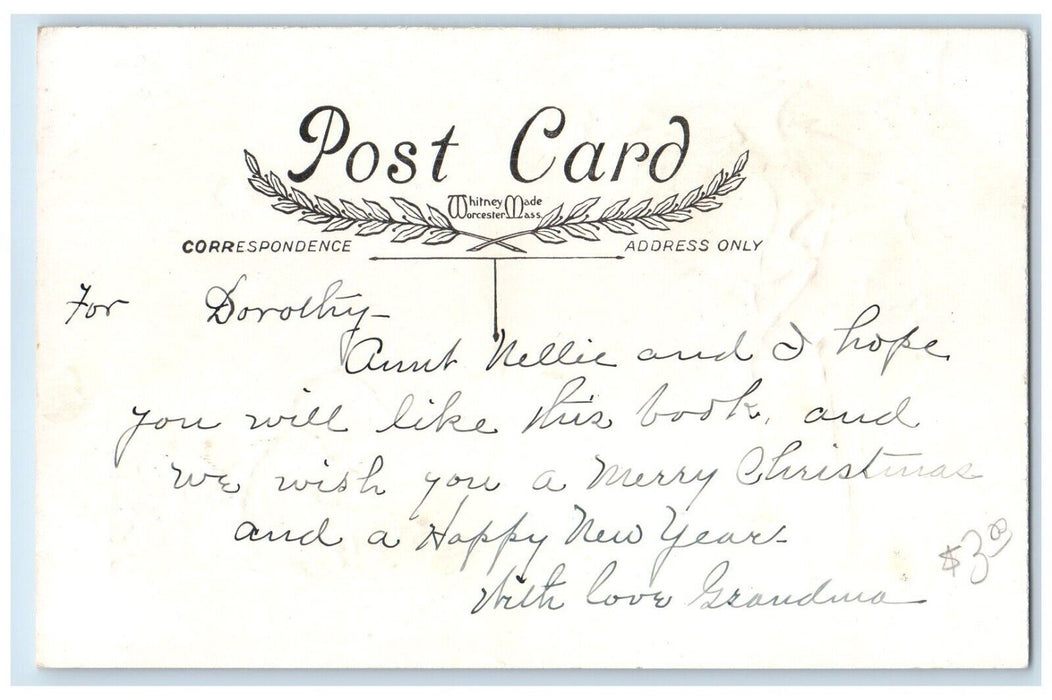 Post Card
Whitney Made
Worcester Mass.
CORRESPONDENCE ADDRESS ONLY
For Dorothy-
Aunt Nellie and I hope
you will like this book, and
we wish you a Merry Christmas
and a Happy New Year-
With love Grandma
$3.00